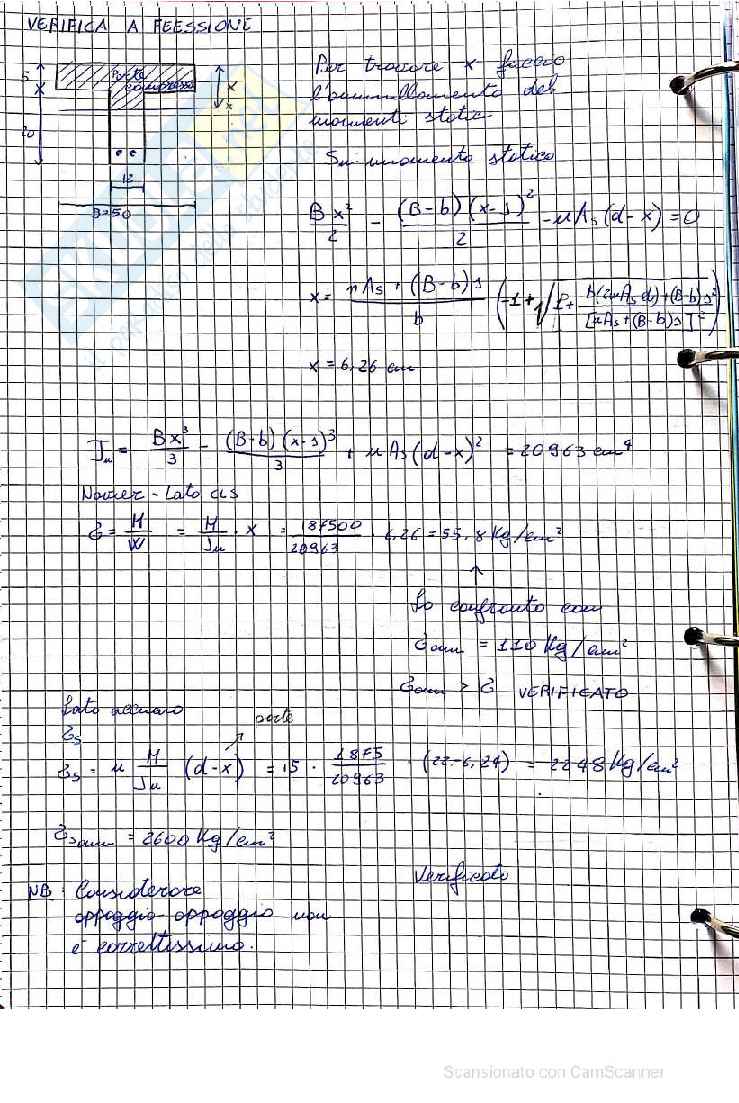 VERIFICA A FLESSIONE
Parte
compressa
5
x
x
20
12
B=50
Per trovare x faccio
l'annullamento dei
momenti statici
Su momento statico
Bx²/2 - (B-b)(x-s)²/2 - nAs(d-x) = 0
x = nAs + (B-b)s / b (-1+√1+ b(2nAs d)+(B-b)s² / [nAs+(B-b)s]²)
x = 6,26 cm
Jn = Bx³/3 - (B-b)(x-s)³/3 + nAs(d-x)² = 20963 cm⁴
Navier - Lato cls
σ = M/W = M/Jn · x = 187500/20963 · 6,26 = 55,8 Kg/cm²
Lo confronto con
σam = 110 Kg/cm²
σam > σ VERIFICATO
Lato acciaio
σs
σs = n M/Jn (d-x) = 15 · 1875/20963 · (22-6,24) = 2248 Kg/cm²
σsam = 2600 Kg/cm²
Verificato
NB. Considerare
appoggio-appoggio non
è correttissimo.
Scansionato con CamScanner